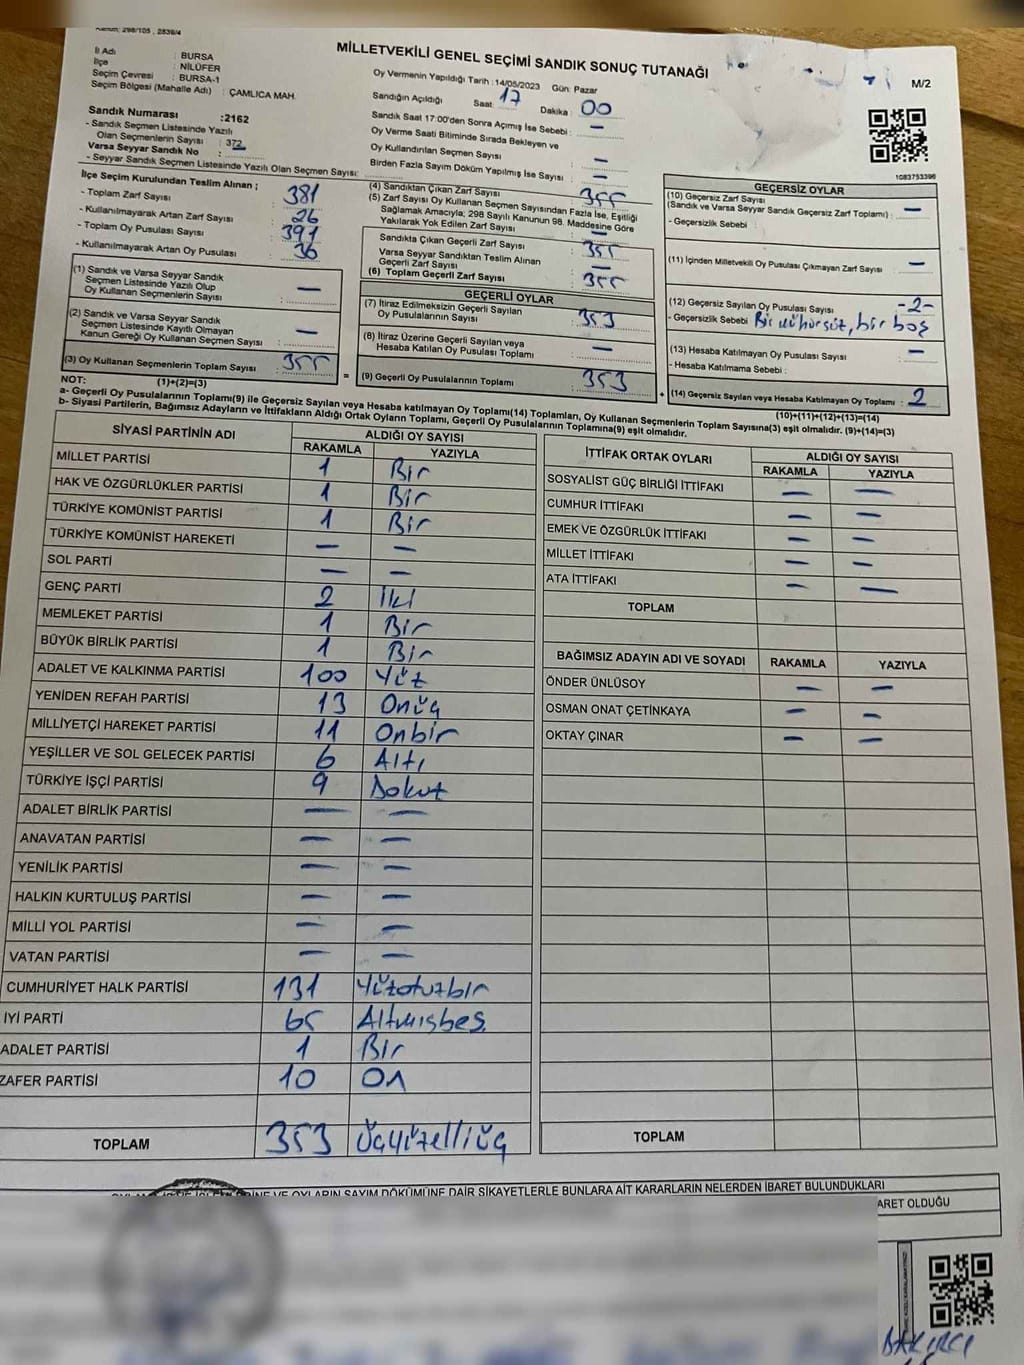 Kanun: 298/105, 2839/4
MİLLETVEKİLİ GENEL SEÇİMİ SANDIK SONUÇ TUTANAĞI
M/2
İl Adı : BURSA
İlçe : NİLÜFER
Seçim Çevresi : BURSA-1
Seçim Bölgesi (Mahalle Adı) : ÇAMLICA MAH.
Sandık Numarası :2162
- Sandık Seçmen Listesinde Yazılı
Olan Seçmenlerin Sayısı : 372
Varsa Seyyar Sandık No :
- Seyyar Sandık Seçmen Listesinde Yazılı Olan Seçmen Sayısı:
Oy Vermenin Yapıldığı Tarih : 14/05/2023 Gün: Pazar
Sandığın Açıldığı Saat: 17 Dakika : 00
Sandık Saat 17:00'den Sonra Açımış İse Sebebi : —
Oy Verme Saati Bitiminde Sırada Bekleyen ve
Oy Kullandırılan Seçmen Sayısı : —
Birden Fazla Sayım Döküm Yapılmış İse Sayısı : —
1083753396
İlçe Seçim Kurulundan Teslim Alınan ;
- Toplam Zarf Sayısı : 381
- Kullanılmayarak Artan Zarf Sayısı : 26
- Toplam Oy Pusulası Sayısı : 391
- Kullanılmayarak Artan Oy Pusulası : 36
(1) Sandık ve Varsa Seyyar Sandık
Seçmen Listesinde Yazılı Olup
Oy Kullanan Seçmenlerin Sayısı : —
(2) Sandık ve Varsa Seyyar Sandık
Seçmen Listesinde Kayıtlı Olmayan
Kanun Gereği Oy Kullanan Seçmen Sayısı : —
(3) Oy Kullanan Seçmenlerin Toplam Sayısı : 355
(4) Sandıktan Çıkan Zarf Sayısı : 355
(5) Zarf Sayısı Oy Kullanan Seçmen Sayısından Fazla İse, Eşitliği
Sağlamak Amacıyla; 298 Sayılı Kanunun 98. Maddesine Göre
Yakılarak Yok Edilen Zarf Sayısı : —
Sandıkta Çıkan Geçerli Zarf Sayısı : 355
Varsa Seyyar Sandıktan Teslim Alınan
Geçerli Zarf Sayısı : —
(6) Toplam Geçerli Zarf Sayısı : 355
GEÇERLİ OYLAR
(7) İtiraz Edilmeksizin Geçerli Sayılan
Oy Pusulalarının Sayısı : 353
(8) İtiraz Üzerine Geçerli Sayılan veya
Hesaba Katılan Oy Pusulası Toplamı : —
= (9) Geçerli Oy Pusulalarının Toplamı : 353
GEÇERSİZ OYLAR
(10) Geçersiz Zarf Sayısı
(Sandık ve Varsa Seyyar Sandık Geçersiz Zarf Toplamı) : —
- Geçersizlik Sebebi :
(11) İçinden Milletvekili Oy Pusulası Çıkmayan Zarf Sayısı : —
(12) Geçersiz Sayılan Oy Pusulası Sayısı : -2-
- Geçersizlik Sebebi : Bir mühürsüz, bir boş
(13) Hesaba Katılmayan Oy Pusulası Sayısı : —
- Hesaba Katılmama Sebebi :
+ (14) Geçersiz Sayılan veya Hesaba Katılmayan Oy Toplamı : 2
NOT: (1)+(2)=(3) (10)+(11)+(12)+(13)=(14)
a- Geçerli Oy Pusulalarının Toplamı(9) ile Geçersiz Sayılan veya Hesaba katılmayan Oy Toplamı(14) Toplamları, Oy Kullanan Seçmenlerin Toplam Sayısına(3) eşit olmalıdır. (9)+(14)=(3)
b- Siyasi Partilerin, Bağımsız Adayların ve İttifakların Aldığı Ortak Oyların Toplamı, Geçerli Oy Pusulalarının Toplamına(9) eşit olmalıdır.
SİYASİ PARTİNİN ADI ALDIĞI OY SAYISI
RAKAMLA YAZIYLA
MİLLET PARTİSİ 1 Bir
HAK VE ÖZGÜRLÜKLER PARTİSİ 1 Bir
TÜRKİYE KOMÜNİST PARTİSİ 1 Bir
TÜRKİYE KOMÜNİST HAREKETİ — —
SOL PARTİ — —
GENÇ PARTİ 2 İki
MEMLEKET PARTİSİ 1 Bir
BÜYÜK BİRLİK PARTİSİ 1 Bir
ADALET VE KALKINMA PARTİSİ 100 Yüz
YENİDEN REFAH PARTİSİ 13 Onüç
MİLLİYETÇİ HAREKET PARTİSİ 11 Onbir
YEŞİLLER VE SOL GELECEK PARTİSİ 6 Altı
TÜRKİYE İŞÇİ PARTİSİ 9 Dokuz
ADALET BİRLİK PARTİSİ — —
ANAVATAN PARTİSİ — —
YENİLİK PARTİSİ — —
HALKIN KURTULUŞ PARTİSİ — —
MİLLİ YOL PARTİSİ — —
VATAN PARTİSİ — —
CUMHURİYET HALK PARTİSİ 131 Yüzotuzbir
İYİ PARTİ 65 Altmışbeş
ADALET PARTİSİ 1 Bir
ZAFER PARTİSİ 10 On
TOPLAM 353 Üçyüzelliüç
İTTİFAK ORTAK OYLARI ALDIĞI OY SAYISI
RAKAMLA YAZIYLA
SOSYALİST GÜÇ BİRLİĞİ İTTİFAKI — —
CUMHUR İTTİFAKI — —
EMEK VE ÖZGÜRLÜK İTTİFAKI — —
MİLLET İTTİFAKI — —
ATA İTTİFAKI — —
TOPLAM
BAĞIMSIZ ADAYIN ADI VE SOYADI RAKAMLA YAZIYLA
ÖNDER ÜNLÜSOY — —
OSMAN ONAT ÇETİNKAYA — —
OKTAY ÇINAR — —
TOPLAM
VE OYLARIN SAYIM DÖKÜMÜNE DAİR ŞİKAYETLERLE BUNLARA AİT KARARLARIN NELERDEN İBARET BULUNDUKLARI
ARET OLDUĞU